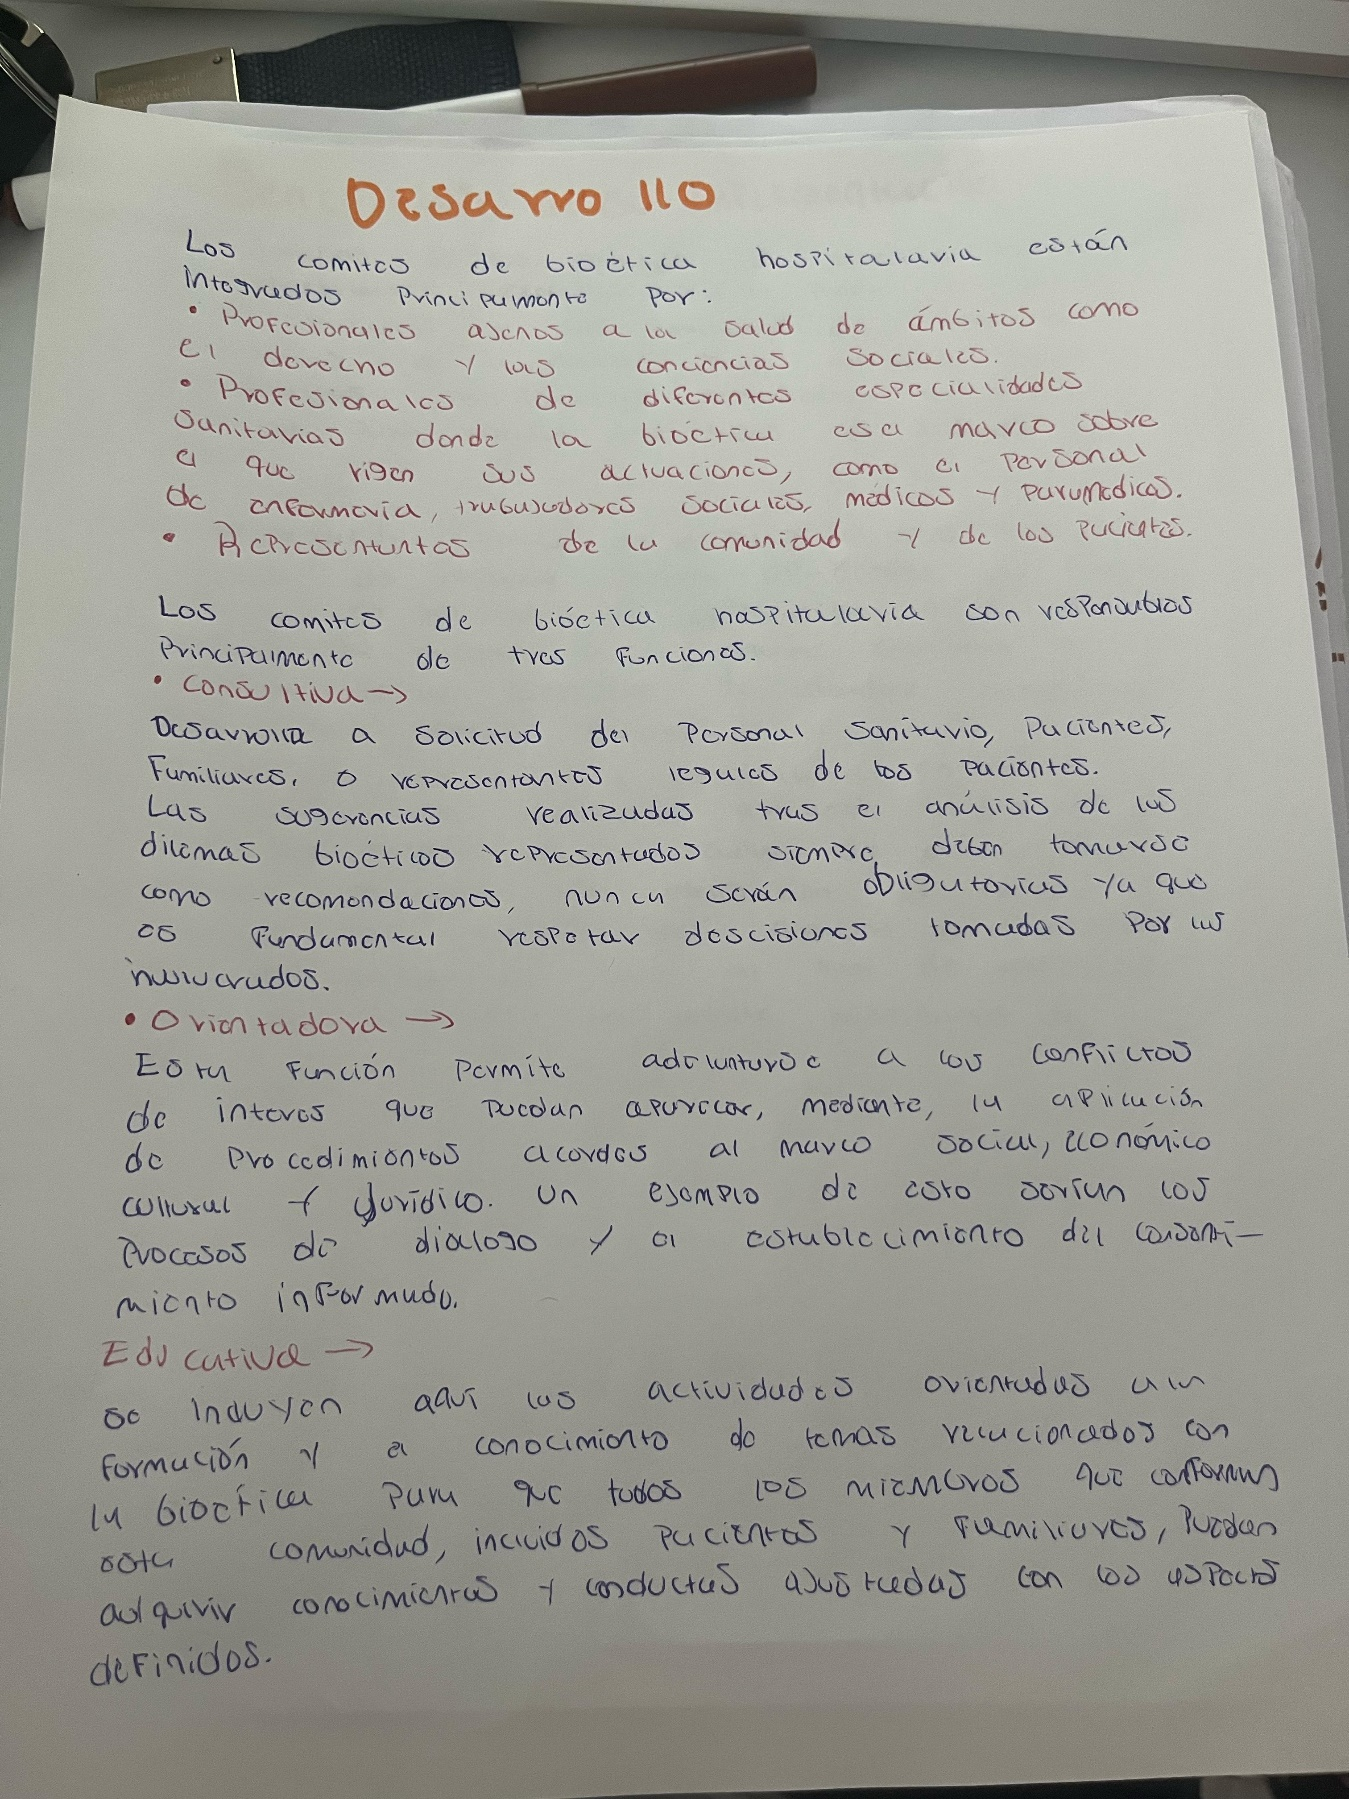 Desarrollo
Los comites de bioética hospitalaria están
Integrados Principalmente Por:
• Profesionales ajenos a la salud de ámbitos como
el derecho y las conciencias sociales.
• Profesionales de diferentes especialidades
Sanitarias donde la bioética es el marco sobre
el que rigen sus actuaciones, como el Personal
de enfermería, trabajadores sociales, médicos y Paramedicos.
• Representantes de la comunidad y de los Pacientes.
Los comites de bioética hospitalaria son responsables
Principalmente de tres funciones.
• Consultiva →
Desarrolla a solicitud del Personal Sanitario, Pacientes,
Familiares, o representantes legales de los Pacientes.
Las sugerencias realizadas tras el análisis de los
dilemas bioéticos representados siempre deben tomarse
como recomendaciones, nunca serán obligatorias ya que
es fundamental respetar descisiones tomadas Por los
involucrados.
• Orientadora →
Esta función Permite adelantarse a los conflictos
de interes que Puedan aparecer, mediante, la aplicación
de Procedimientos acordes al marco social, económico
cultural y Jurídico. Un ejemplo de esto serían los
Procesos de dialogo y el establecimiento del consenti-
miento informado.
Educativa →
se incluyen aquí las actividades orientadas a la
formación y el conocimiento de temas relacionados con
la bioética Para que todos los miembros que conforman
esta comunidad, incluidos Pacientes y Familiares, Puedan
adquirir conocimientos y conductas ajustadas con los aspectos
definidos.